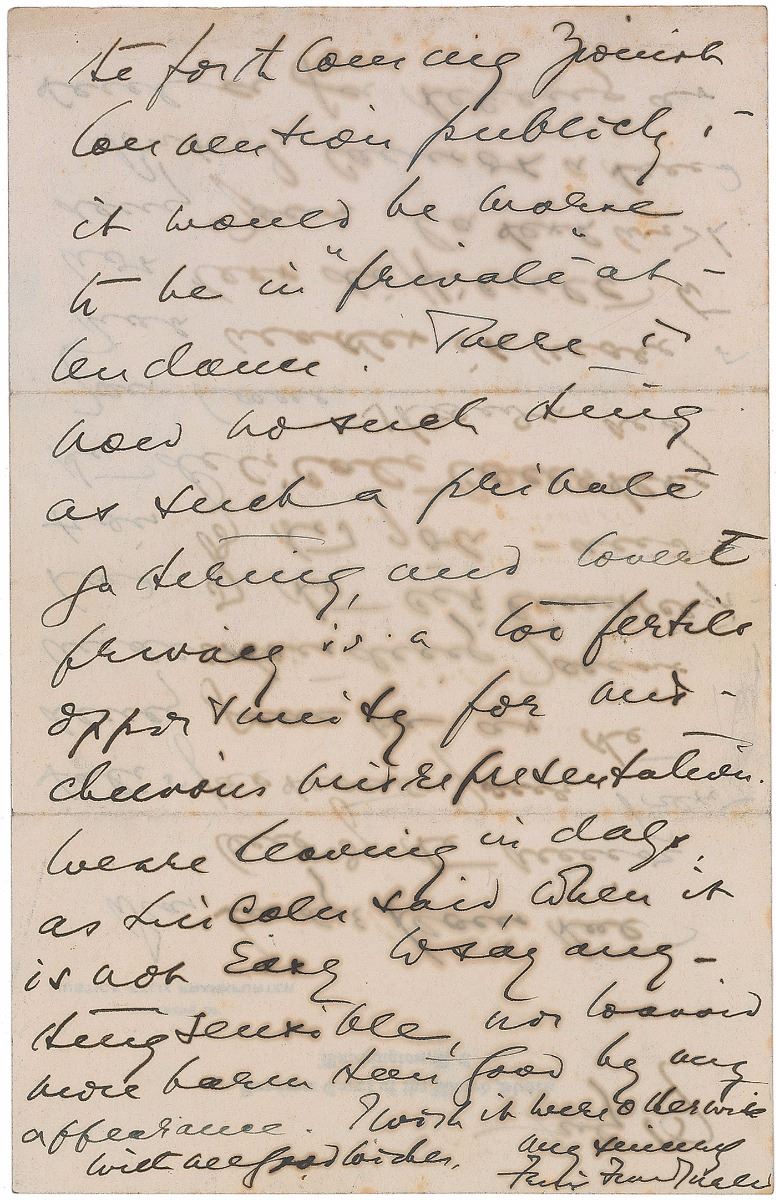 the forthcoming Zionist
Convention publicly,
it would be worse
to be in "private" at-
tendance. There is
now no such thing
as such a private
gathering, and covert
privacy is a too fertile
opportunity for mis-
chievous misrepresentation.
We are living in days,
as Lincoln said, when it
is not easy to say any-
thing sensible, nor to avoid
more harm than good by any
appearance. I wish it were otherwise
With all good wishes,
Very sincerely
Felix Frankfurter